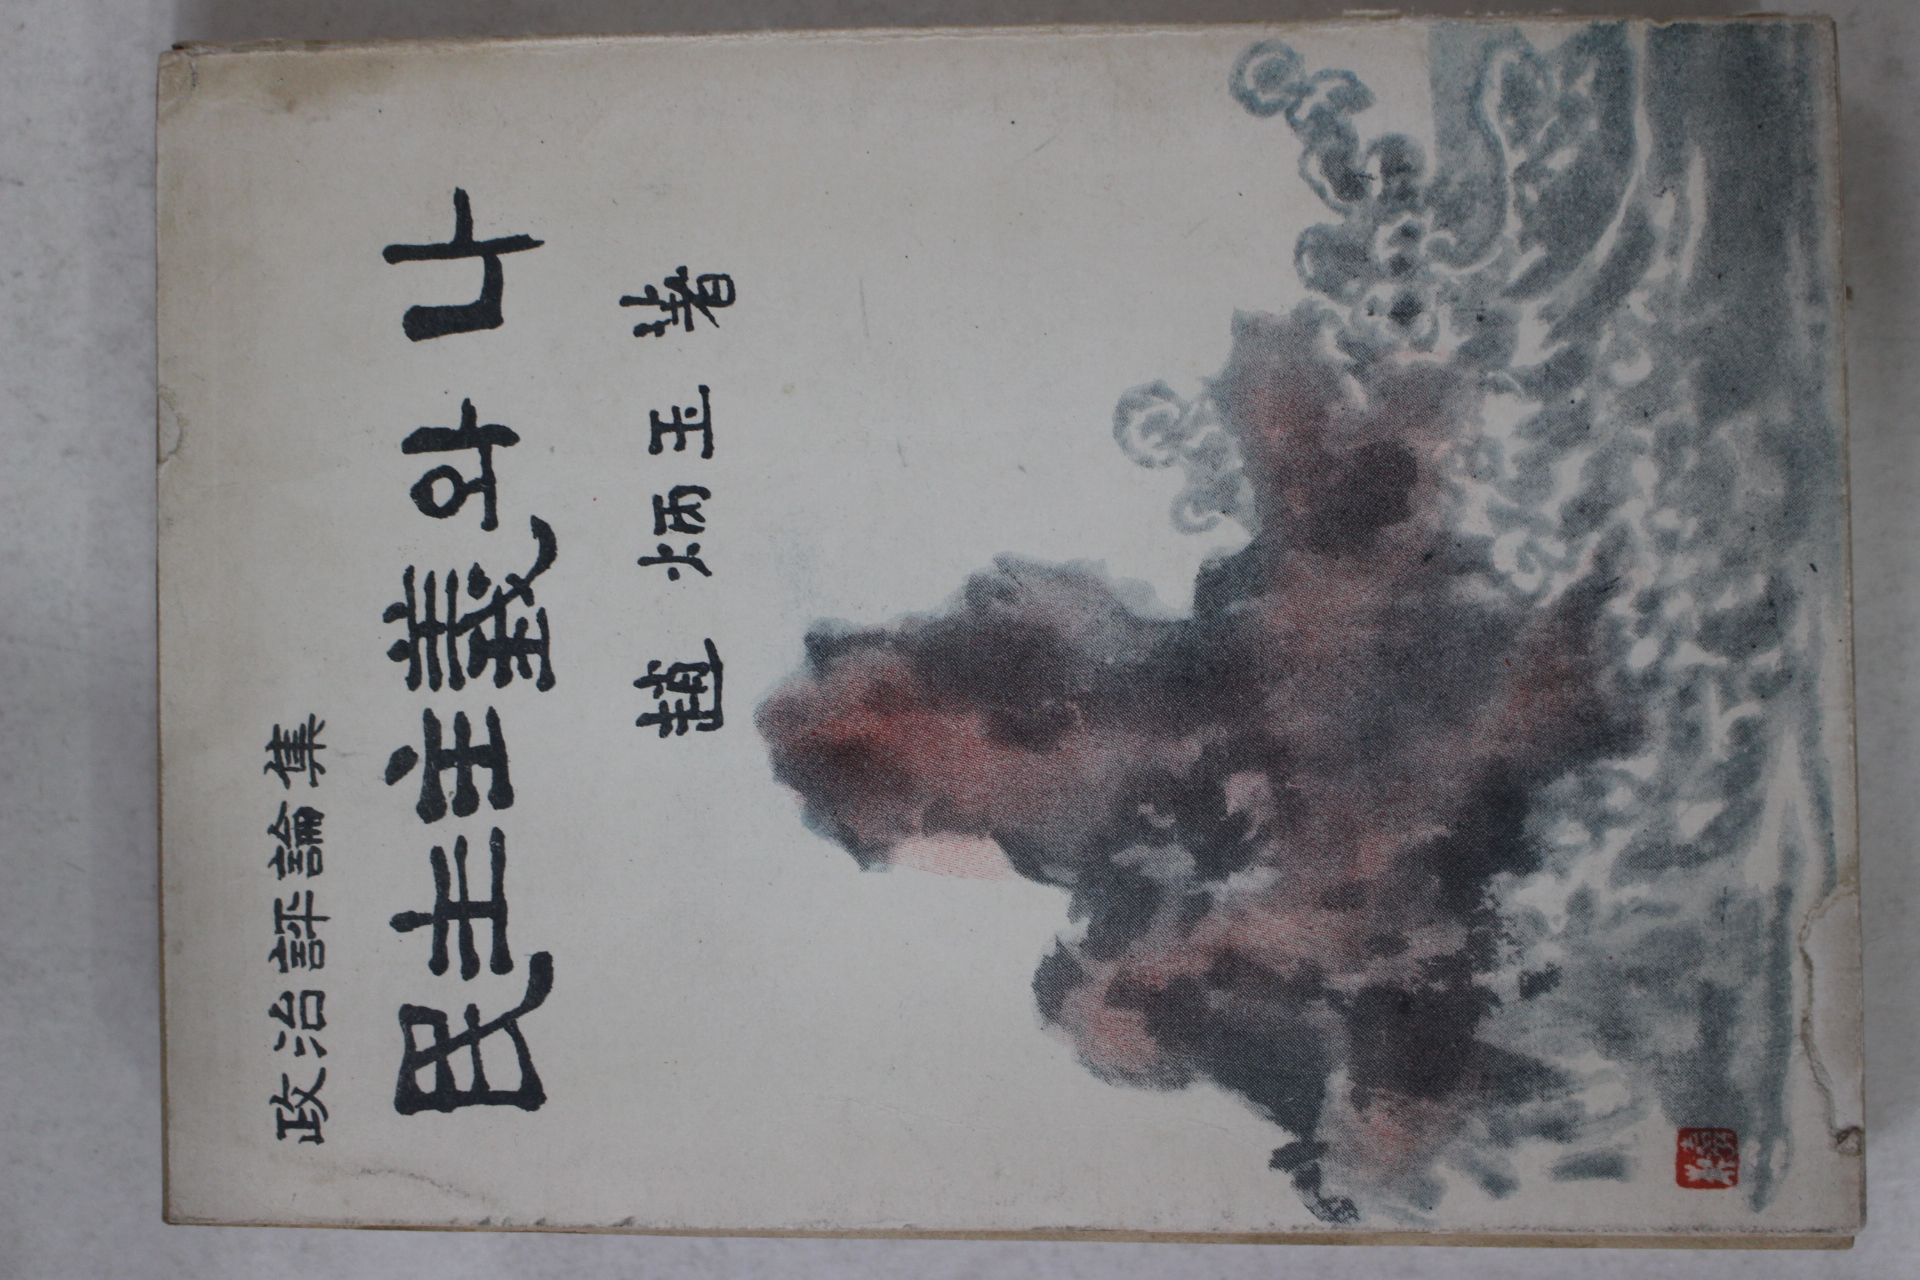 政治評論集
民主主義와 나
趙炳玉 著